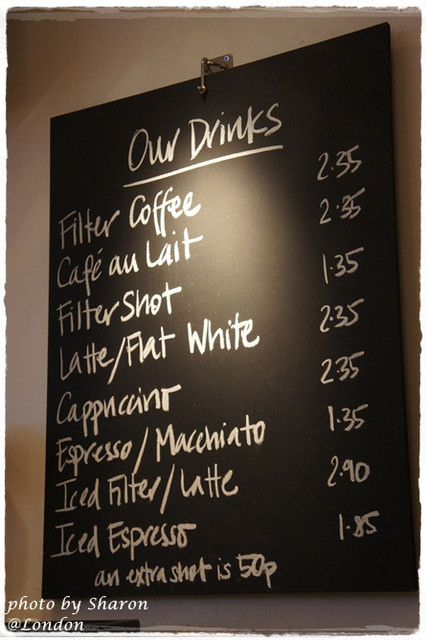 Our Drinks
Filter Coffee 2.35
Café au Lait 2.35
Filter Shot 1.35
Latte/Flat White 2.35
Cappuccino 2.35
Espresso/Macchiato 1.35
Iced Filter/Latte 2.90
Iced Espresso 1.85
an extra shot is 50p
photo by Sharon
@London